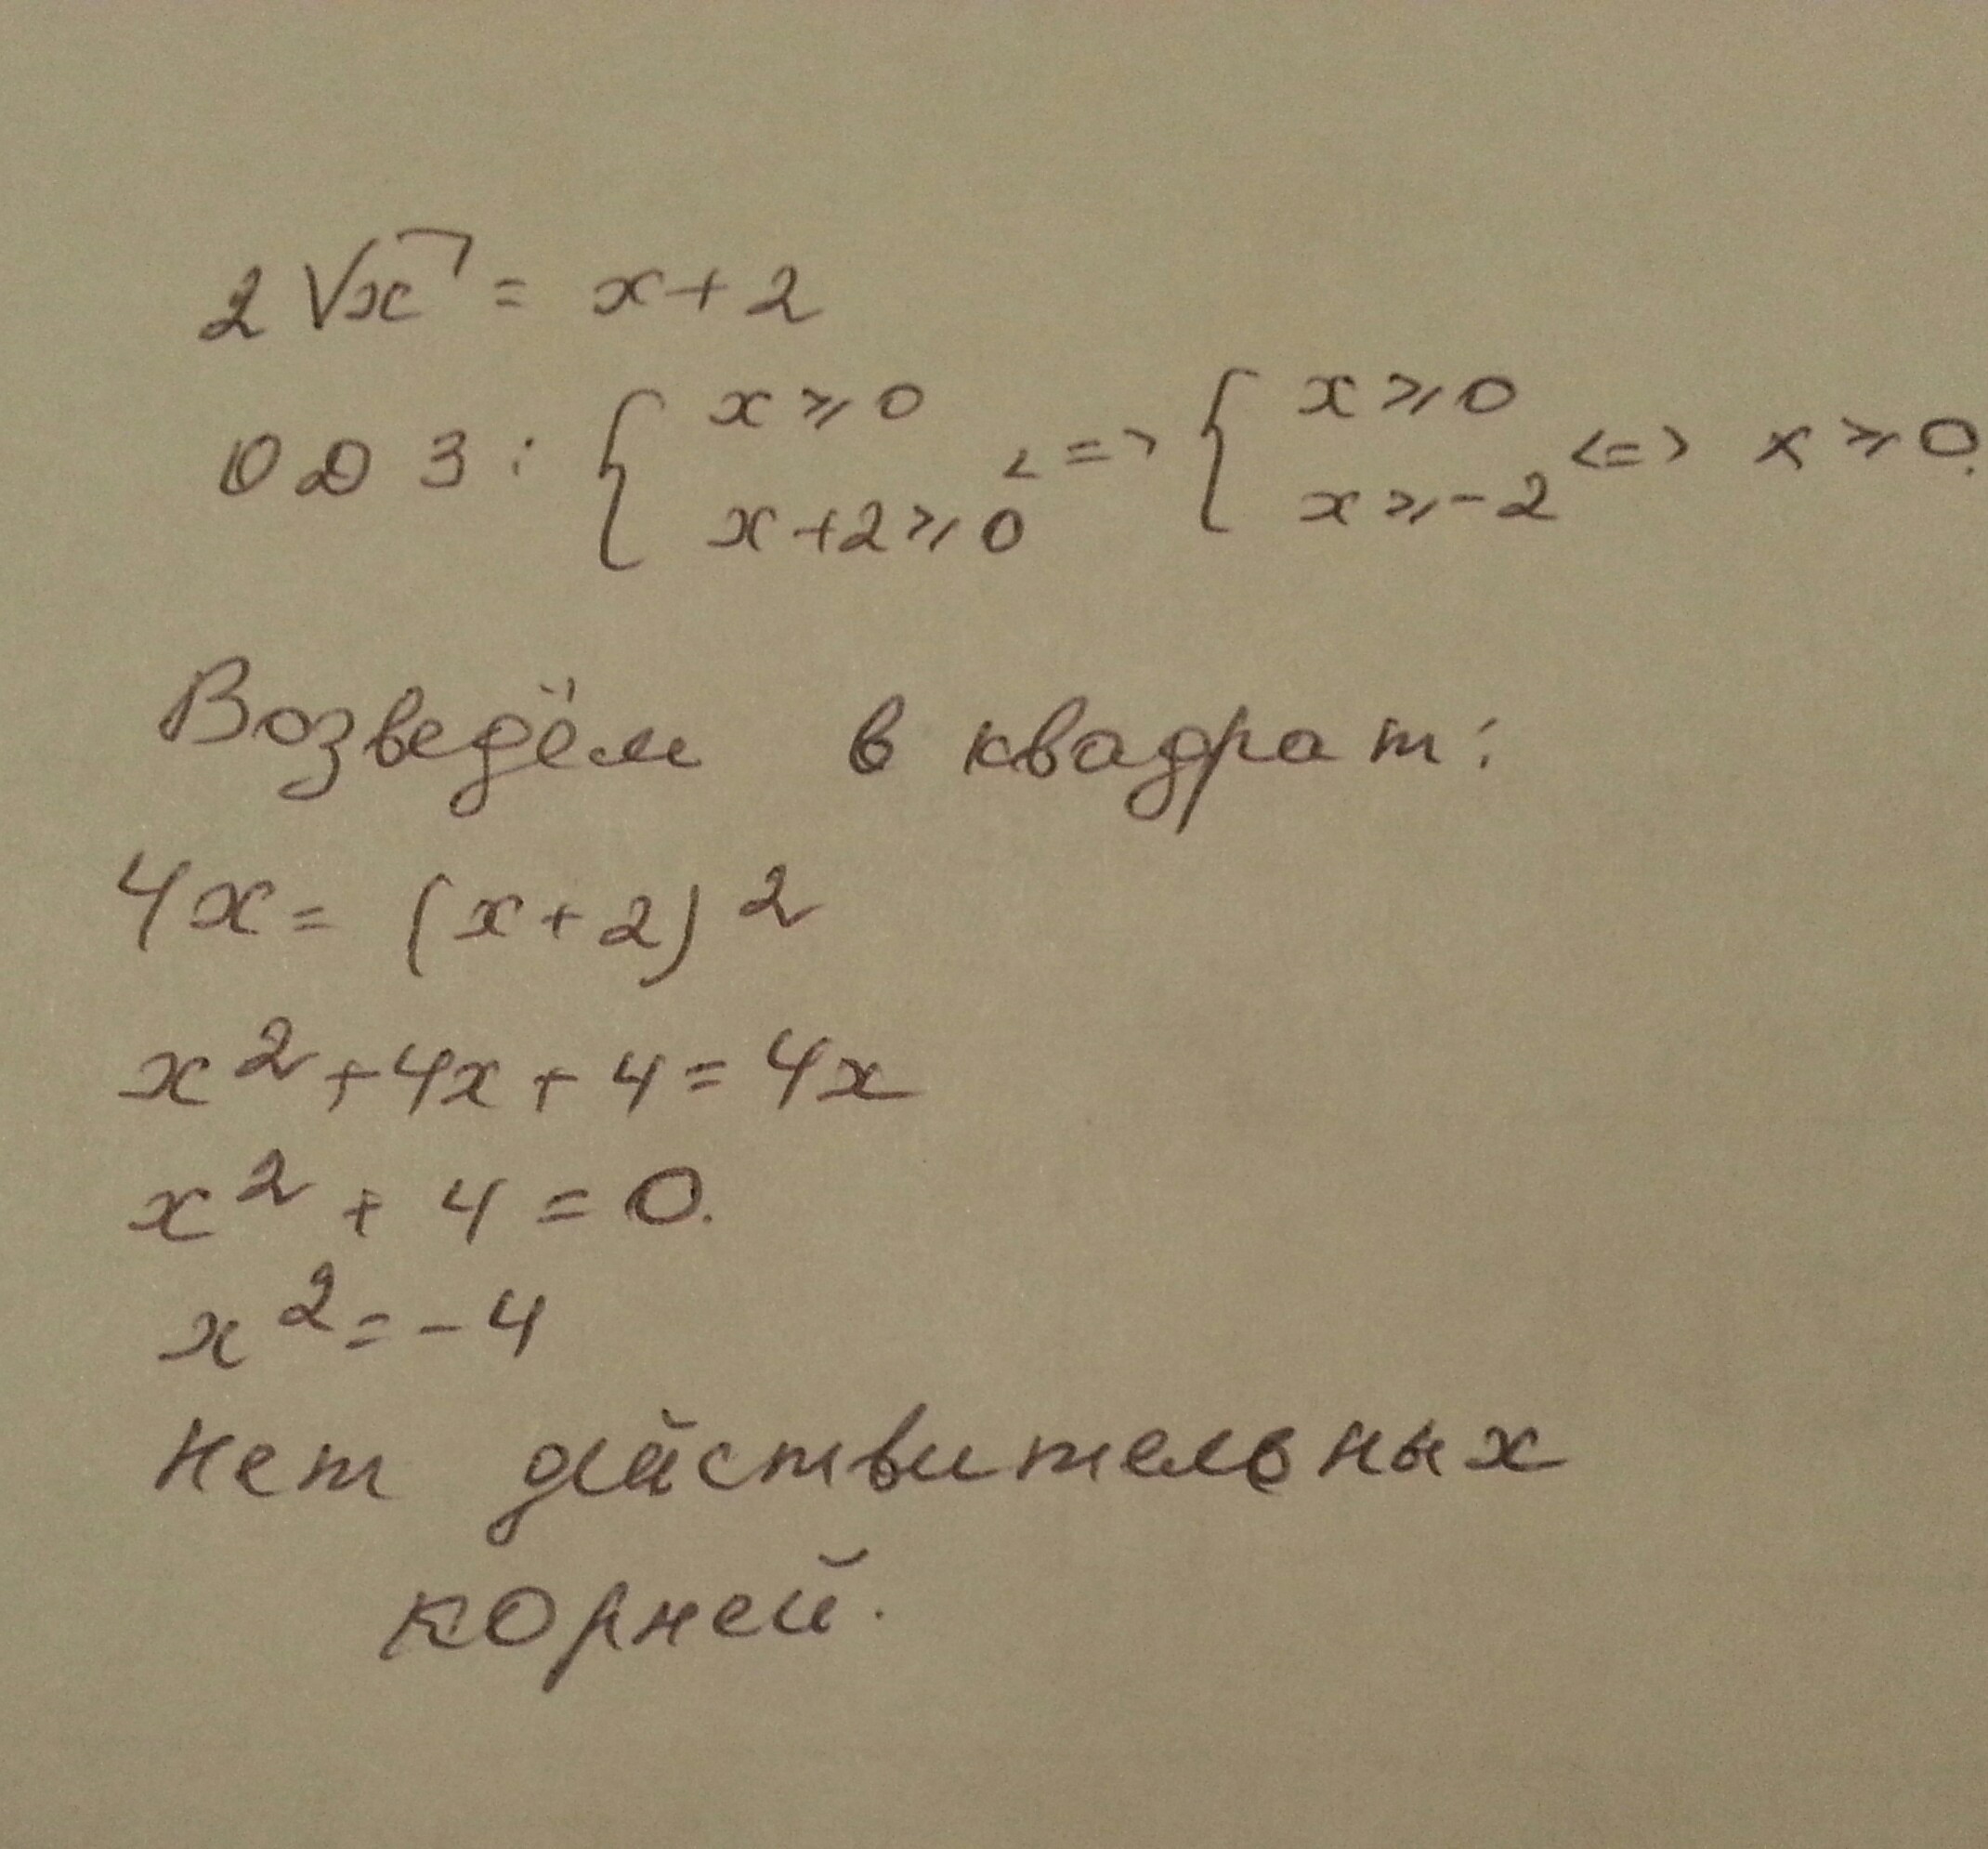 2√x = x + 2
ОДЗ: { x ⩾ 0 x + 2 ⩾ 0 <=> { x ⩾ 0 x ⩾ -2 <=> x ⩾ 0.
Возведём в квадрат:
4x = (x + 2)²
x² + 4x + 4 = 4x
x² + 4 = 0.
x² = -4
нет действительных
корней.